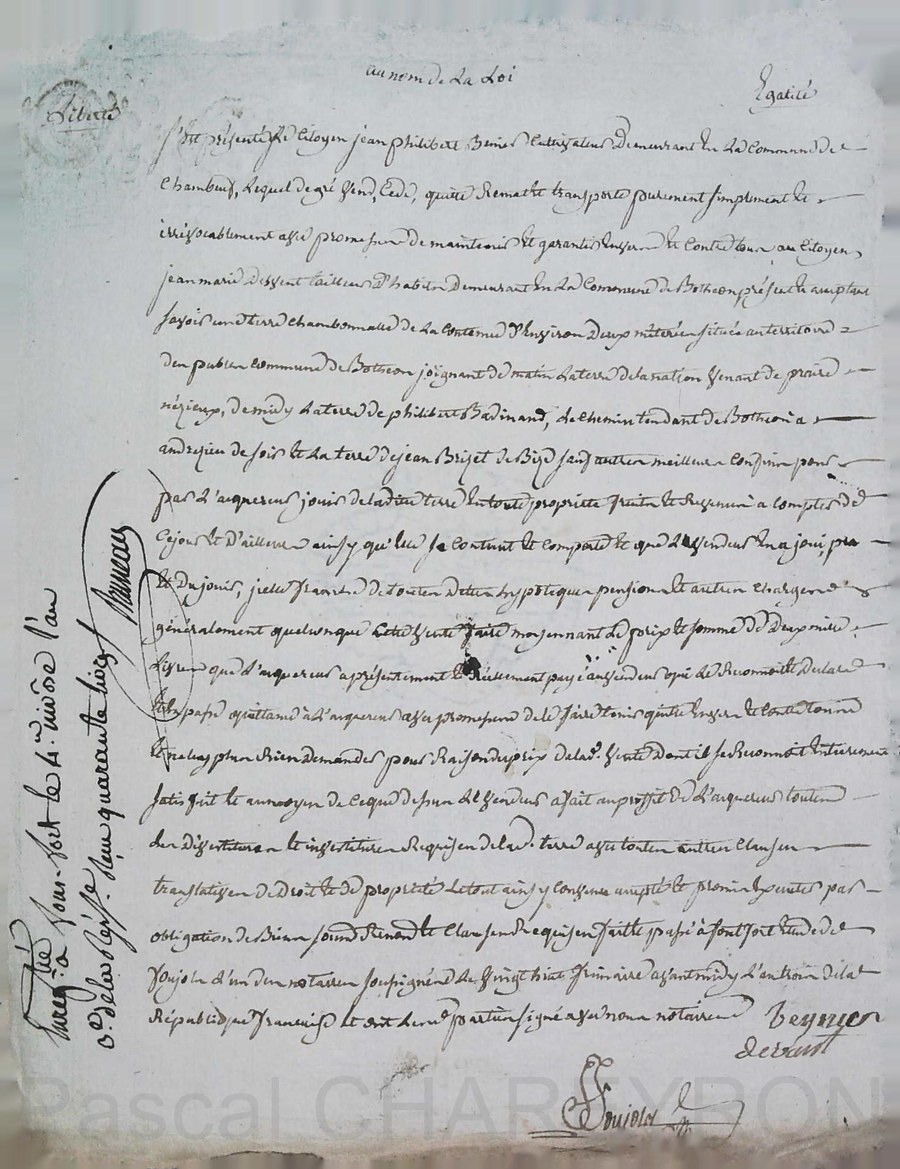 au nom de La Loi
Liberté
Egalité
S'est présenté Le Citoyen jean philibert Beinier Cultivateur Demeurant En La Commune de
Chambeuf, Lequel de gré Vend, Cede, quitte Remet et transporte purement simplement et
irrévocablement avec promesse de maintenir et garantir Envers et Contre tous au Citoyen
jean marie Dessent tailleur D'habits Demeurant En La Commune de Botheon présent et acceptant
savoir une terre Chambonnalle de La Contenue D'Environ Deux méterées située au territoire
commune de Botheon joignant de matin La terre de la nation Venant de
de midy La terre de philibert Badinand, Le Chemin tendant de Botheon a
andrezieu de soir et La terre de jean Brizet de Bize sauf autres meilleurs Confins pour
par L'aquereur jouir de ladite terre En toute propriété fruits et Revenus a Compter de
Ce jour et D'ailleurs ainsy qu'elle Se Contient et Comporte et que Le Vendeur En a joui, pu
et Du jouir, icelle franche de toutes Dettes hypotique pension et autres Charges
généralement quelconque Cette Vente faite moyennant Le prix et somme de Deux mille
Livres que L'aquereur a présentement et Réellement payé au Vendeur qui Le Reconnoit Declare
et En passe quittance à L'aquereur avec promesse de le faire tenir quitte Envers et Contre tous
et ne luy plus Rien Demander pour Raison du prix de lad. Vente Dont il se Reconnoit Entierement
satisfait et au moyen de Ce que dessus Le Vendeur a fait au proffit de L'aquereur toutes
Les Dévestitures et investitures Requises de lad. terre avec toutes autres Clauses
translatives de Droit et de propriété Le tout ainsy Convenu accepté et promis Executer par
obligation de Biens et Clauses Requises fait et passé à font fort Etude de
Soujole L'un des notaires soussignés Le Vingt huit frimaire avant midy L'an trois de la
République francaise et ont Les parties signé avec nous notaires
Beynier
Dessant
Soujolos
Enregistré à fons-fort le 4. nivôse l'an
3e. de la Rép. Reçu quarante livres